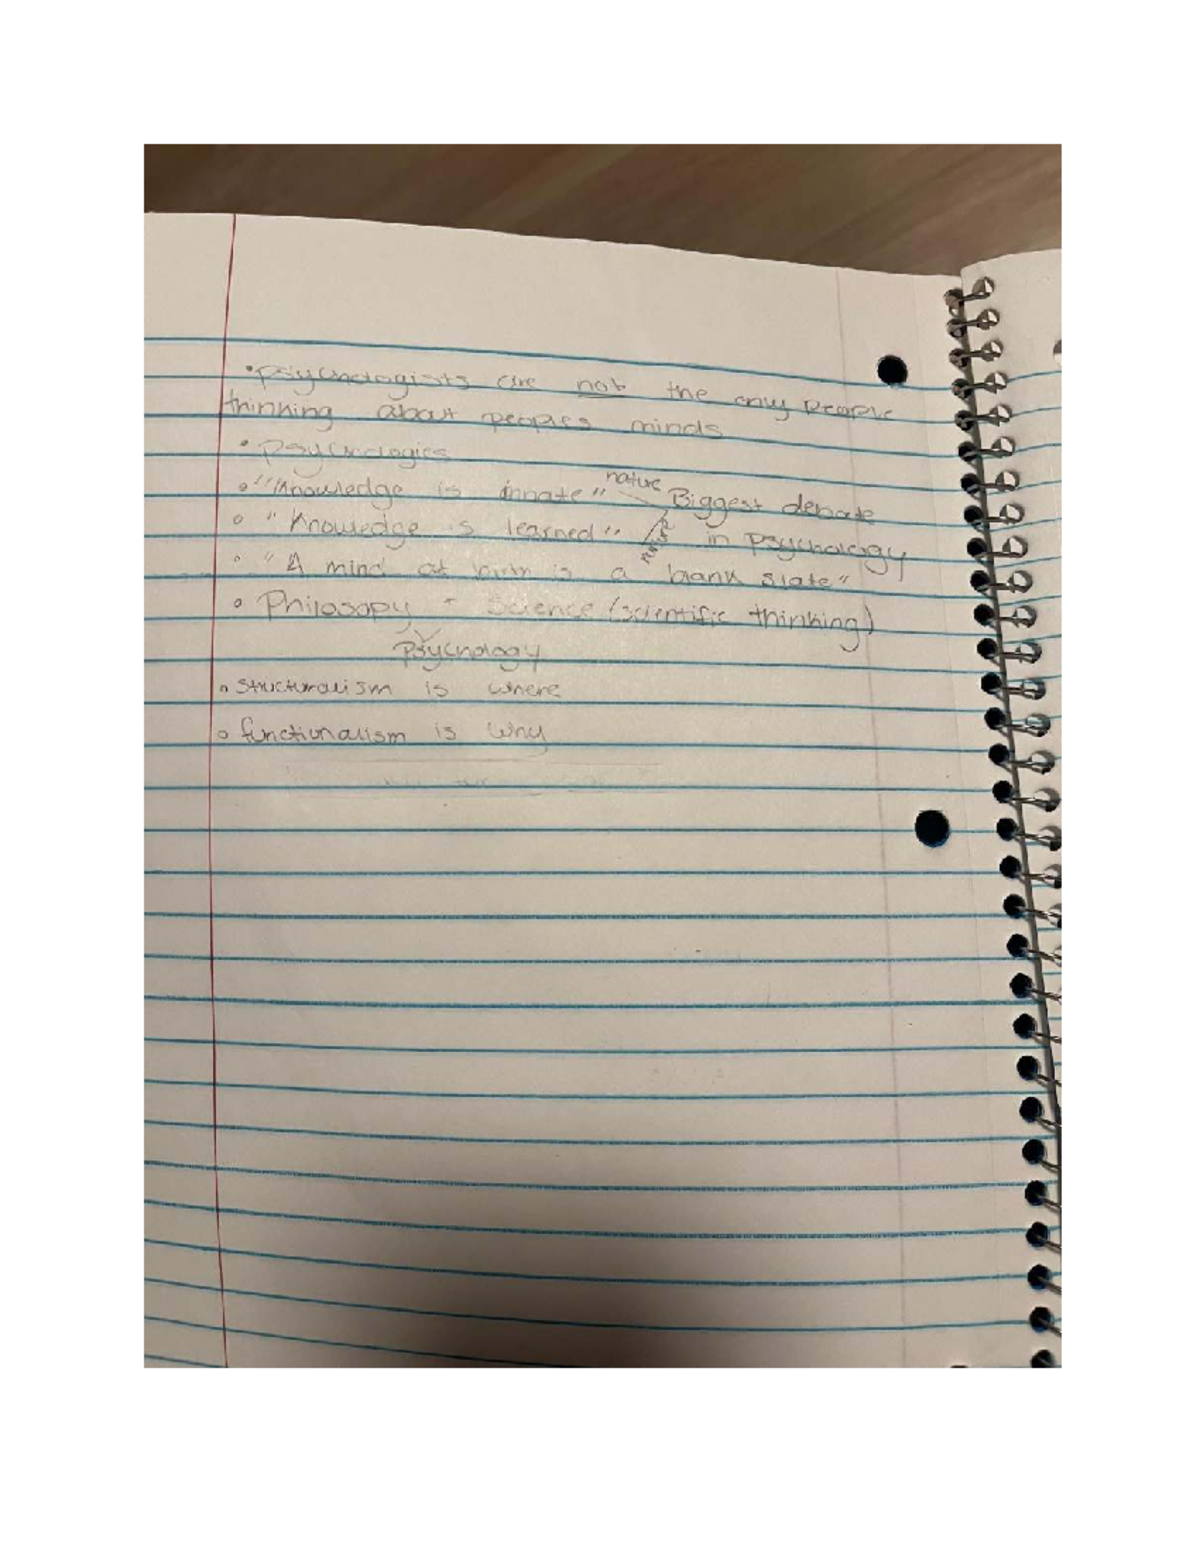 •psychologists are not the only people
thinking about peoples minds
• psychologics
• "Knowledge is innate" nature Biggest debate
• "Knowledge is learned" in psychology
• "A mind at birth is a blank slate"
• Philosopy + Science (scientific thinking)
Psychology
• structuralism is where
• functionalism is why